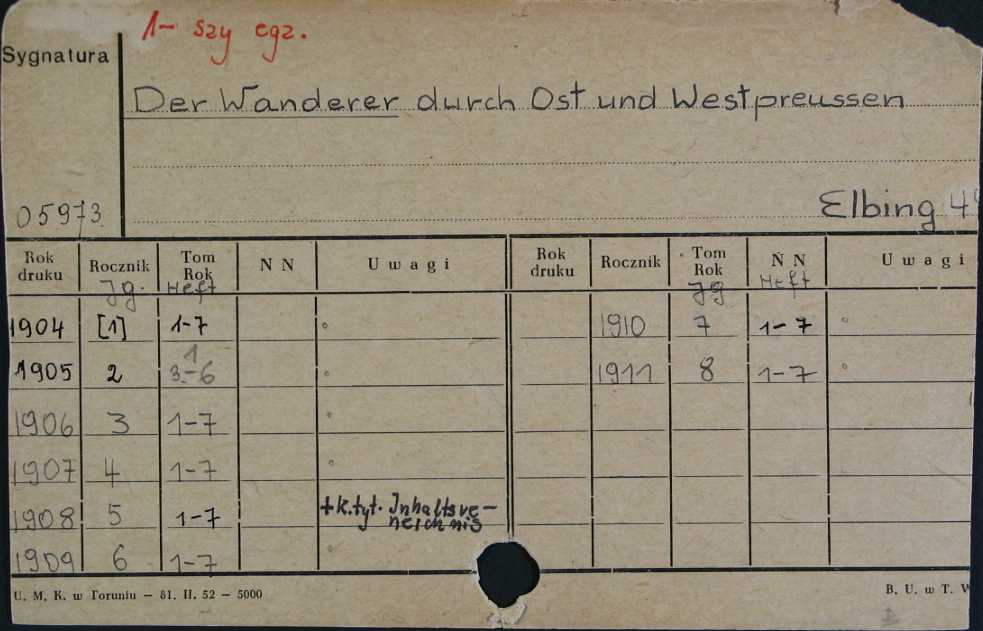 1- szy egz.
Sygnatura
Der Wanderer durch Ost und Westpreussen
05973
Elbing
Rok druku Rocznik Tom Rok N N Uwagi Rok druku Rocznik Tom Rok N N Uwagi
Jg. Heft Jg Heft
1904 [1] 1-7 1910 7 1-7
1
1905 2 3-6 1911 8 1-7
1906 3 1-7
1907 4 1-7
1908 5 1-7 +k.tyt. Inhaltsve-
neichnis
1909 6 1-7
U. M. K. w Toruniu — 81. II. 52 — 5000 B. U. w T.